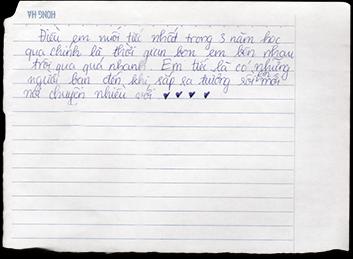 HONG HA
Điều em nuối tiếc nhất trong 3 năm học
qua chính là thời gian bọn em bên nhau
trôi qua quá nhanh. Em tiếc là có những
người bạn đến khi sắp xa trường rồi mới
nói chuyện nhiều với